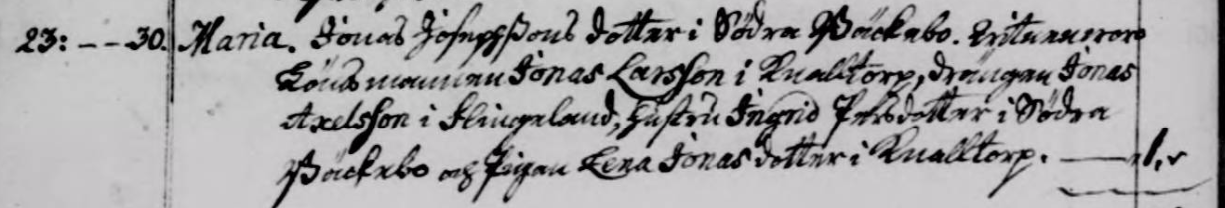 23: -- 30. Maria. Jonas Josephssons dotter i Södra Bäckebo. Vittnen voro
Länsmannen Jonas Larsson i Knalltorp, drängen Jonas
Axelsson i Slingeland, hustru Ingrid Persdotter i Södra
Bäckebo och Pigan Lena Jonasdotter i Knalltorp.